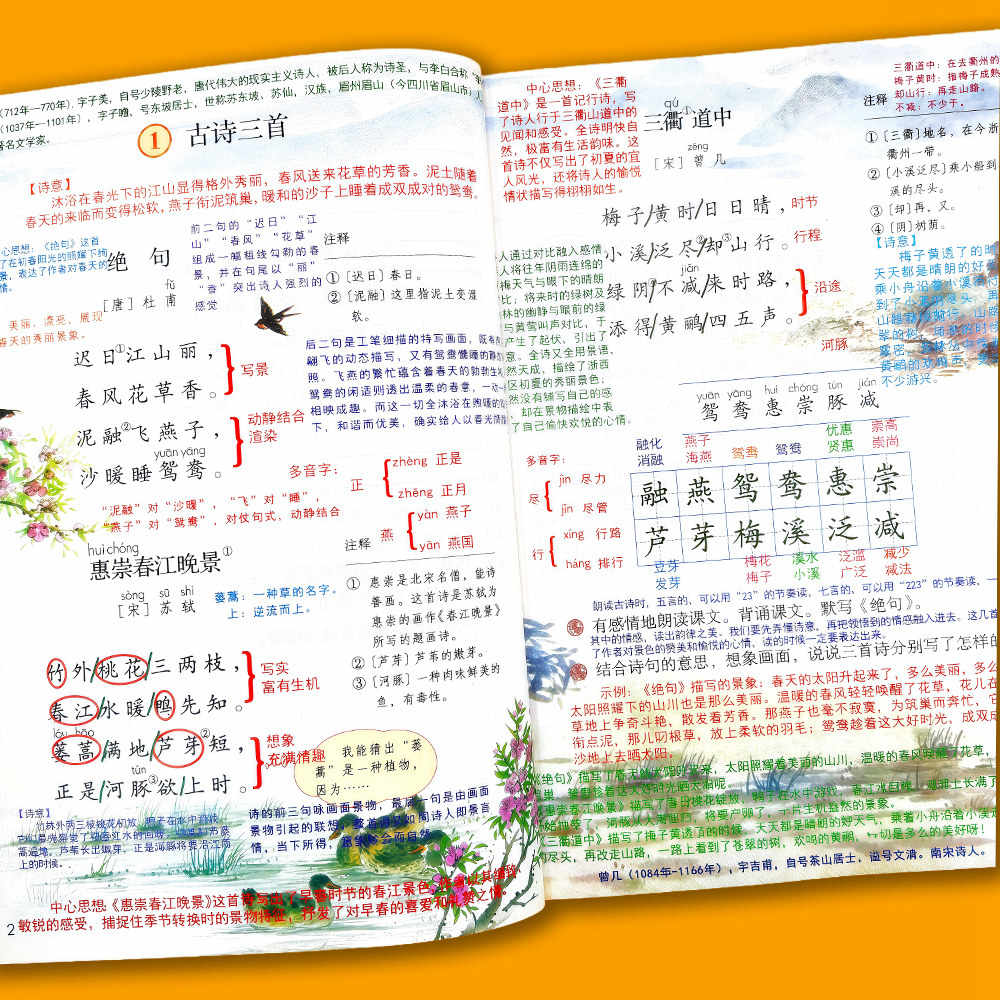 （712年—770年），字子美，自号少陵野老，唐代伟大的现实主义诗人，被后人称为诗圣，与李白合称
（1037年—1101年），字子瞻、号东坡居士，世称苏东坡、苏仙，汉族，眉州眉山（今四川省眉山市）人
著名文学家。
1 古诗三首
【诗意】
沐浴在春光下的江山显得格外秀丽，春风送来花草的芳香。泥土随着
春天的来临而变得松软，燕子衔泥筑巢，暖和的沙子上睡着成双成对的鸳鸯。
中心思想：《绝句》这首
了在初春阳光的照耀下绚
景，表达了作者对春天的
情。
绝 句
fǔ
［唐］杜 甫
前二句的“迟日”“江
山”“春风”“花草”
组成一幅粗线勾勒的春
景，并在句尾以“丽”
“香”突出诗人强烈的
感觉
注释
①〔迟日〕春日。
②〔泥融〕这里指泥土变湿
软。
美丽、漂亮，展现
春天的秀丽景象。
迟日①江山丽，
春风花草香。
写景
泥融②飞燕子，
yuān yāng
沙暖睡鸳鸯。
动静结合
渲染
后二句是工笔细描的特写画面，既有
翩飞的动态描写，又有鸳鸯慵睡的静
照。飞燕的繁忙蕴含着春天的勃勃生
鸳鸯的闲适则透出温柔的春意，一动一
相映成趣。而这一切全沐浴在煦暖的
下，和谐而优美，确实给人以春光旖旎
“泥融”对“沙暖”，“飞”对“睡”，
“燕子”对“鸳鸯”，对仗句式，动静结合
多音字：
正
zhèng 正是
zhēng 正月
燕
yàn 燕子
yān 燕国
huì chóng
惠崇春江晚景①
sòng sū shì
［宋］苏 轼
蒌蒿：一种草的名字。
上：逆流而上。
注释
① 惠崇是北宋名僧，能诗
善画。这首诗是苏轼为
惠崇的画作《春江晚景》
所写的题画诗。
②〔芦芽〕芦苇的嫩芽。
③〔河豚〕一种肉味鲜美的
鱼，有毒性。
竹外/桃花/三两枝，
春江/水暖/鸭先知。
写实
富有生机
lóu hāo
蒌蒿/满地/芦芽②短，
tún
正是/河豚③欲/上时。
想象
充满情趣
我能猜出“蒌
蒿”是一种植物，
因为……
【诗意】
上的时候。
诗的前三句咏画面景物，最后一句是由画面
景物引起的联想。整首诗又如同诗人即景言
情，当下所得，
中心思想：《惠崇春江晚景》这首诗写出了早春时节的春江景色，作者以其细致、
敏锐的感受，捕捉住季节转换时的景物特征，抒发了对早春的喜爱和礼赞之情。
2
中心思想：《三衢
道中》是一首记行诗，写
了诗人行于三衢山道中的
见闻和感受，全诗明快自
然，极富有生活韵味。这
首诗不仅写出了初夏的宜
人风光，还将诗人的愉悦
情状描写得栩栩如生。
qú
三衢①道中
zēng
［宋］曾 几
三衢道中：在去衢州的
梅子黄时：指梅子成熟
却山行：再走山路。
不减：不少于。
注释
①〔三衢〕地名，在今浙
衢州一带。
②〔小溪泛尽〕乘小船到
溪的尽头。
③〔却〕再、又。
④〔阴〕树荫。
梅子/黄时/日日晴，
时节
小溪/泛尽②/却③山行。
行程
jiǎn
绿阴④/不减/来时路，
添得/黄鹂/四五声。
沿途
河豚
人通过对比融入感情
人将往年阴雨连绵的
梅天气与眼下的晴朗
比；将来时的绿树及
林的幽静与眼前的绿
与黄莺叫声对比，于
产生了起伏，引出了
意。全诗又全用景语，
然天成，描绘了浙西
区初夏的秀丽景色；
然没有铺写自己的感
却在景物描绘中表
了自己愉快欢悦的心情。
【诗意】
梅子黄透了的时
天天都是晴朗的好
乘小舟沿着小溪
到了小溪的尽头，再
不少游兴。
yuān yāng huì chóng tún jiǎn
鸳 鸯 惠 崇 豚 减
融化 燕子 优惠 崇高
消融 海燕 鸳鸯 鸳鸯 贤惠 崇尚
融 燕 鸳 鸯 惠 崇
芦 芽 梅 溪 泛 减
豆芽 梅花 溪水 泛滥 减少
发芽 梅子 小溪 广泛 减法
多音字：
尽
jìn 尽力
jǐn 尽管
行
xíng 行路
háng 排行
朗读古诗时，五言的，可以用“23”的节奏读，七言的，可以用“223”的节奏读，一
有感情地朗读课文。背诵课文。默写《绝句》。
其中的情感，读出韵律之美。我们要先弄懂诗意，再把领悟到的情感融入进去。这几首
了作者对景色的赞美和愉悦的心情，读的时候一定要表达出来。
结合诗句的意思，想象画面，说说三首诗分别写了怎样的
示例：《绝句》描写的景象：春天的太阳升起来了，多么美丽，多么
太阳照耀下的山川也是那么美丽。温暖的春风轻轻唤醒了花草，花儿在
草地上争奇斗艳，散发着芳香。那燕子也毫不寂寞，为筑巢而奔忙，它
衔点泥，那儿叼根草，放上柔软的羽毛；鸳鸯趁着这大好时光，成双成
沙地上去晒太阳。
《三衢道中》描写了梅子黄透了的时候，天天都是晴朗的好天气，乘着小舟沿着小溪
的尽头，再改走山路，一路上看到了苍翠的树，欢鸣的黄鹂，一切是多么的美好呀！
曾几（1084年-1166年），字吉甫，自号茶山居士，谥号文清。南宋诗人。